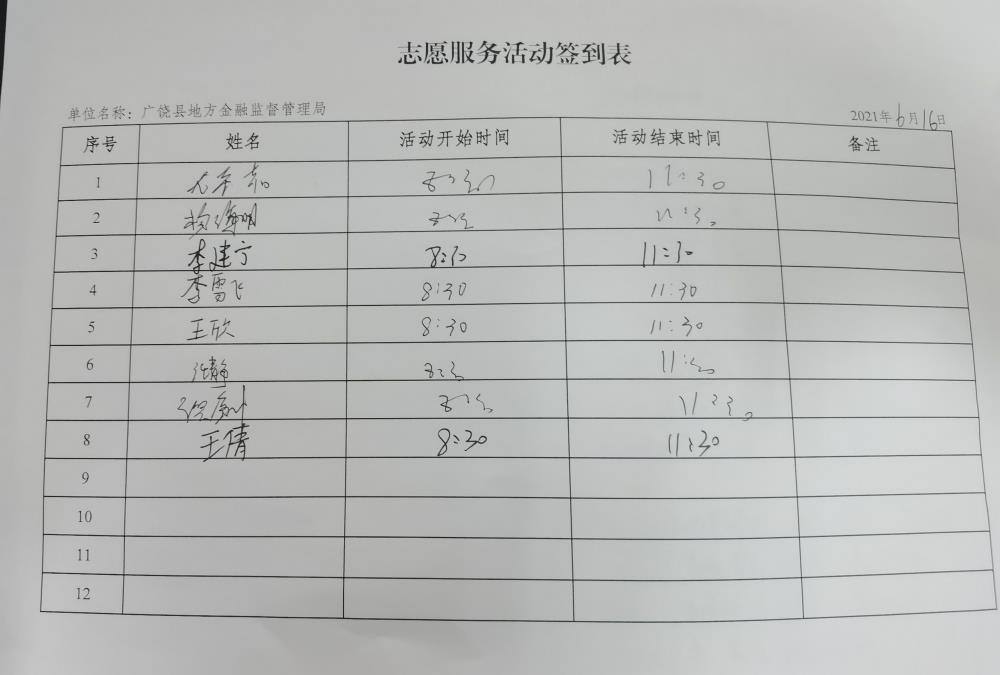 志愿服务活动签到表
单位名称：广饶县地方金融监督管理局 2021年6月16日
序号 姓名 活动开始时间 活动结束时间 备注
1 11:30
2 11:30
3 李建宁 8:30 11:30
4 李雪飞 8:30 11:30
5 王欣 8:30 11:30
6 张静 8:30 11:30
7 8:30 11:30
8 王倩 8:30 11:30
9
10
11
12